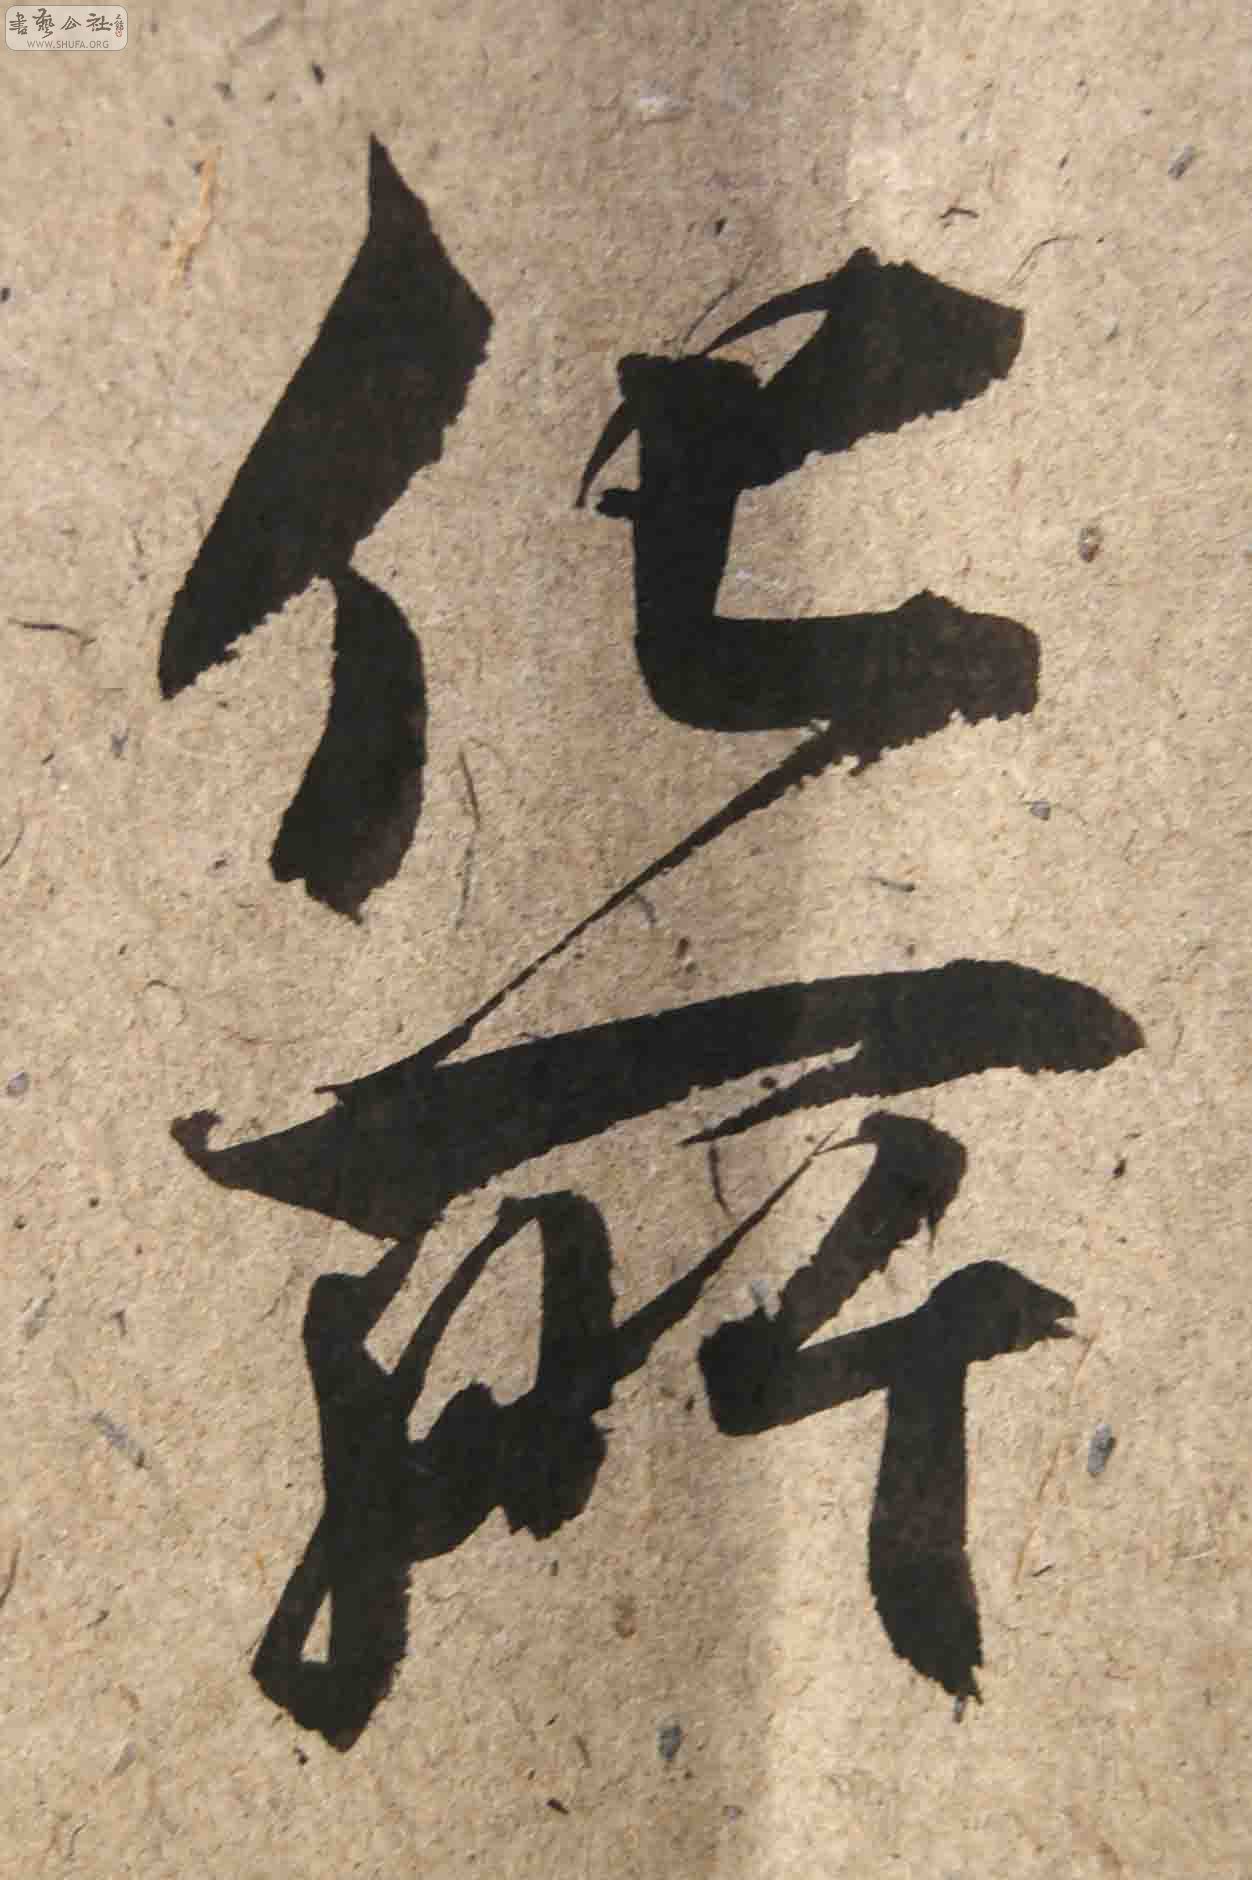 書藝公社
WWW.SHUFA.ORG
化
所